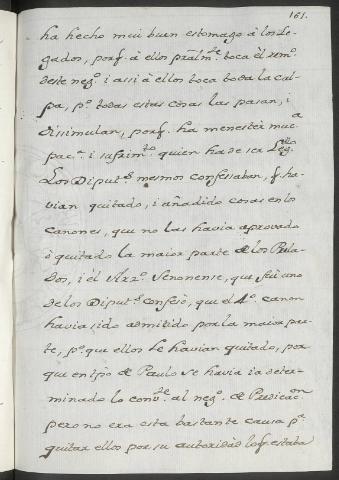 161.
ha hecho mui buen estomago â los Le-
gados, porq̃ â ellos prâlm.te toca èl rem.o
deste neg.o i assi â ellos toca toda la cul-
pa, p.o todas estas cosas las pasan, i
dissimulan, porq̃ ha menester muc.a
pac.a i sufrim.to quien ha de ser Leg.do
Los Diput.s mesmos confessaban, q̃ ha-
vian quitado, i añadido cosas en los
canones, que no las havia aprovado
ò quitado la maior parte de los Prela-
dos, i èl Arz.o Senonense, que fuè uno
de los Diput.s confesò, que èl 4.o canon
havia sido admitido por la maior par-
te, p.o que ellos le havian quitado, por
que en tpo de Paulo se havia ia deter-
minado lo conv.te al neg.o de Predicac.on
pero no era esta bastante causa p.a
quitar ellos por su autoridad lo q̃ estaba